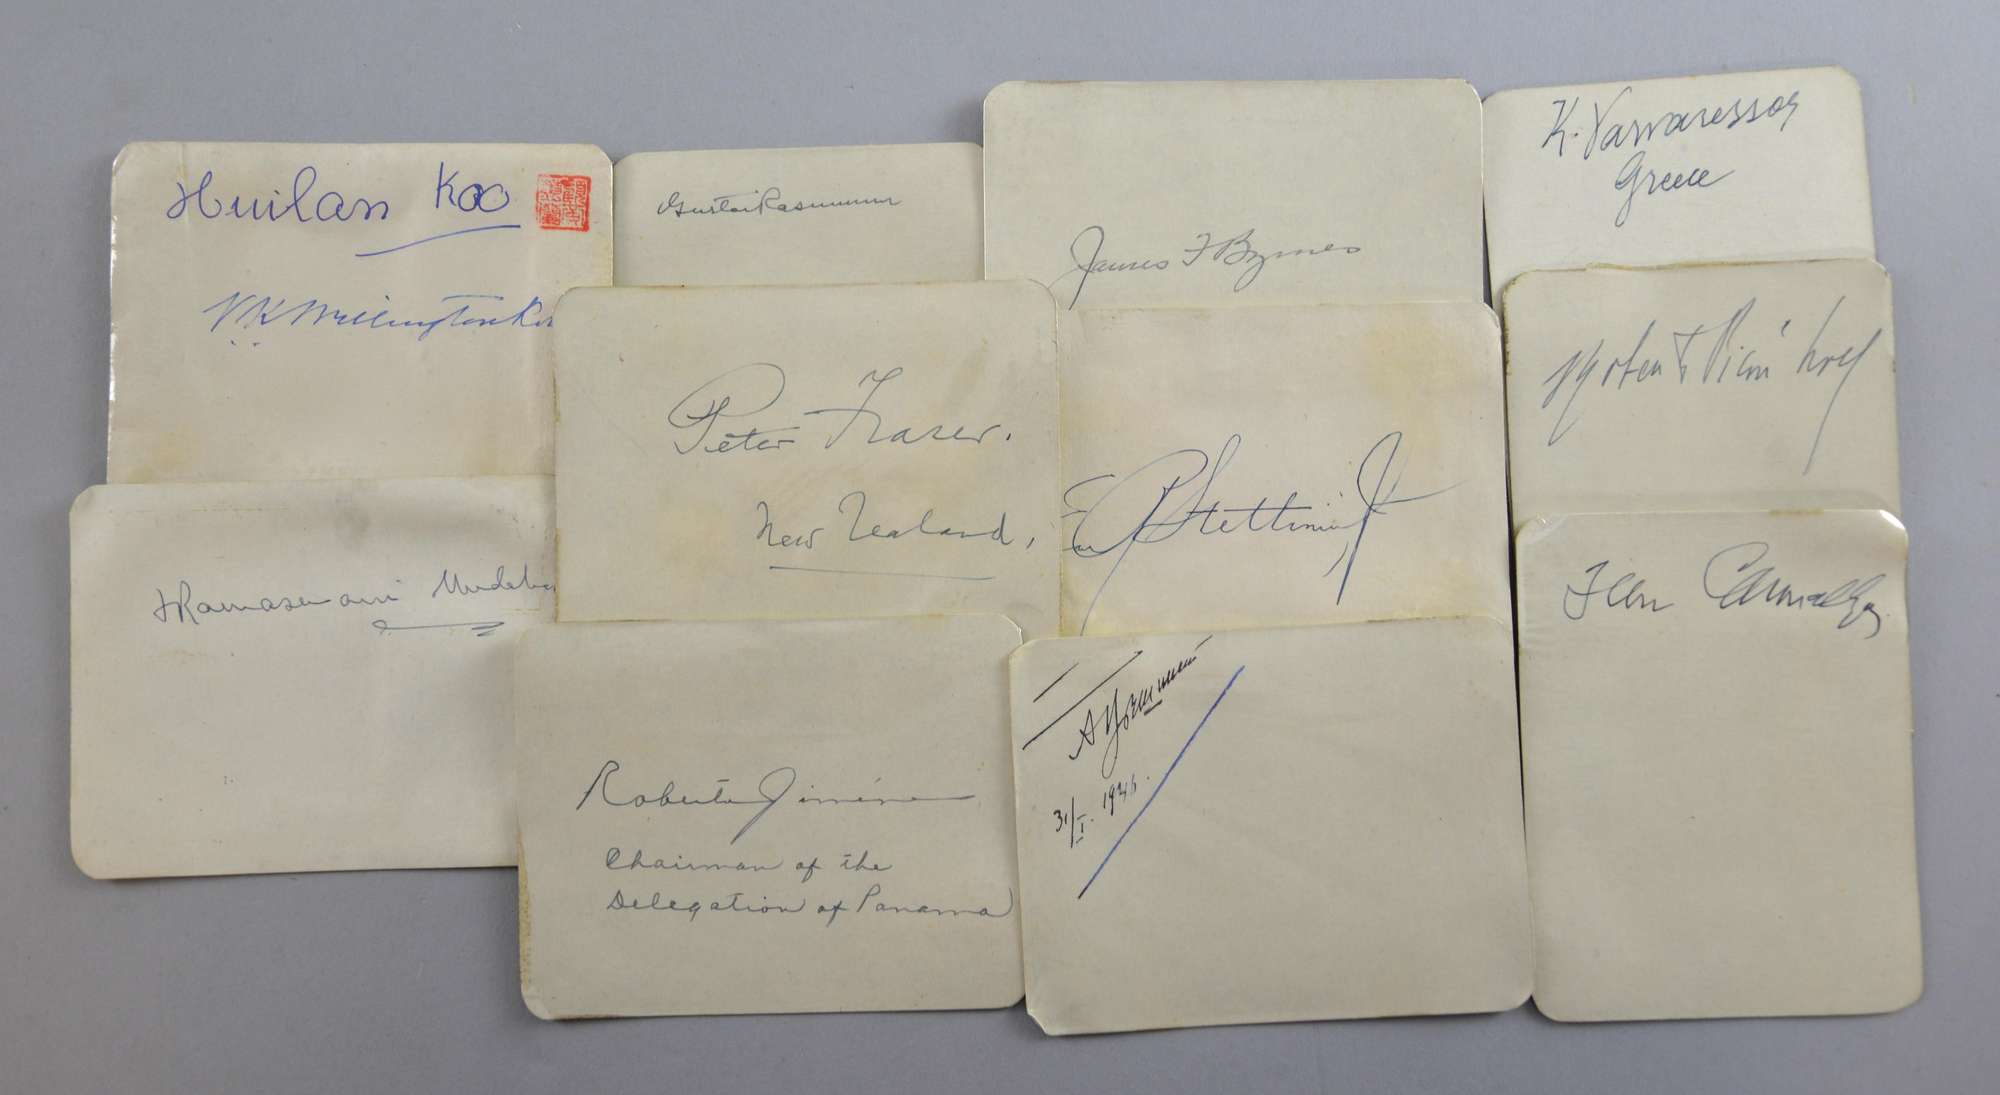 Huilan Koo
V K Wellington Ko
Gustav Rasmussen
James F Byrnes
K. Varvaressos
Greece
Peter Fraser.
New Zealand,
E R Stettinius Jr
A Ramaswami Mudalia
Roberto Jiménez
Chairman of the
Delegation of Panama
31/I. 1946.